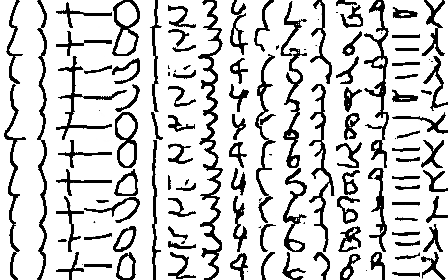 ( ) + - 0 1 2 3 4 6 7 8 9 = X
( ) + - 0 1 2 3 4 6 7 8 9 = X
( ) + - 0 1 2 3 4 6 7 8 9 = X
( ) + - 0 1 2 3 4 6 7 8 9 = X
( ) + - 0 1 2 3 4 6 7 8 9 = X
( ) + - 0 1 2 3 4 6 7 8 9 = X
( ) + - 0 1 2 3 4 6 7 8 9 = X
( ) + - 0 1 2 3 4 6 7 8 9 = X
( ) + - 0 1 2 3 4 6 7 8 9 = X
( ) + - 0 1 2 3 4 6 7 8 9 = X